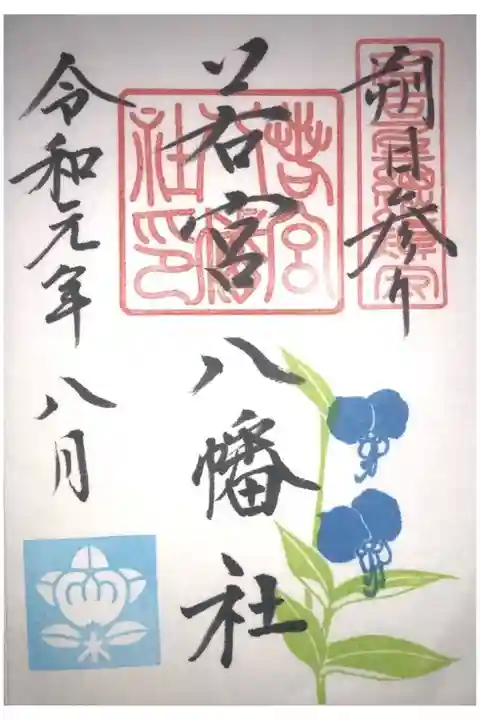 朔日参り
若宮八幡社
令和元年八月
若宮
八幡
社印